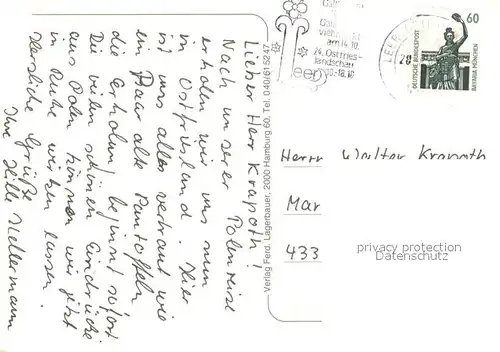 Lieber Herr Krapoth!
Nach unserer Polenreise
erholen wir uns nun
in Ostfriesland. Hier
ist uns alles vertraut wie
ein Paar alte Pantoffeln,
die Erholung beginnt sofort
Die vielen schönen Eindrücke
aus Polen können wir jetzt
in Ruhe wirken lassen.
Herzliche Grüße
Ihre Hille
Verlag Ferd. Lagerbauer, 2000 Hamburg 60, Tel. 040/61 52 47
viehm
am 14.10.
24. Ostfries-
landschau
10.-18.10
leer
LEER
20
60
DEUTSCHE BUNDESPOST
BAVARIA MÜNCHEN
Herrn Walter Krapoth
Mar
433
privacy protection
Datenschutz